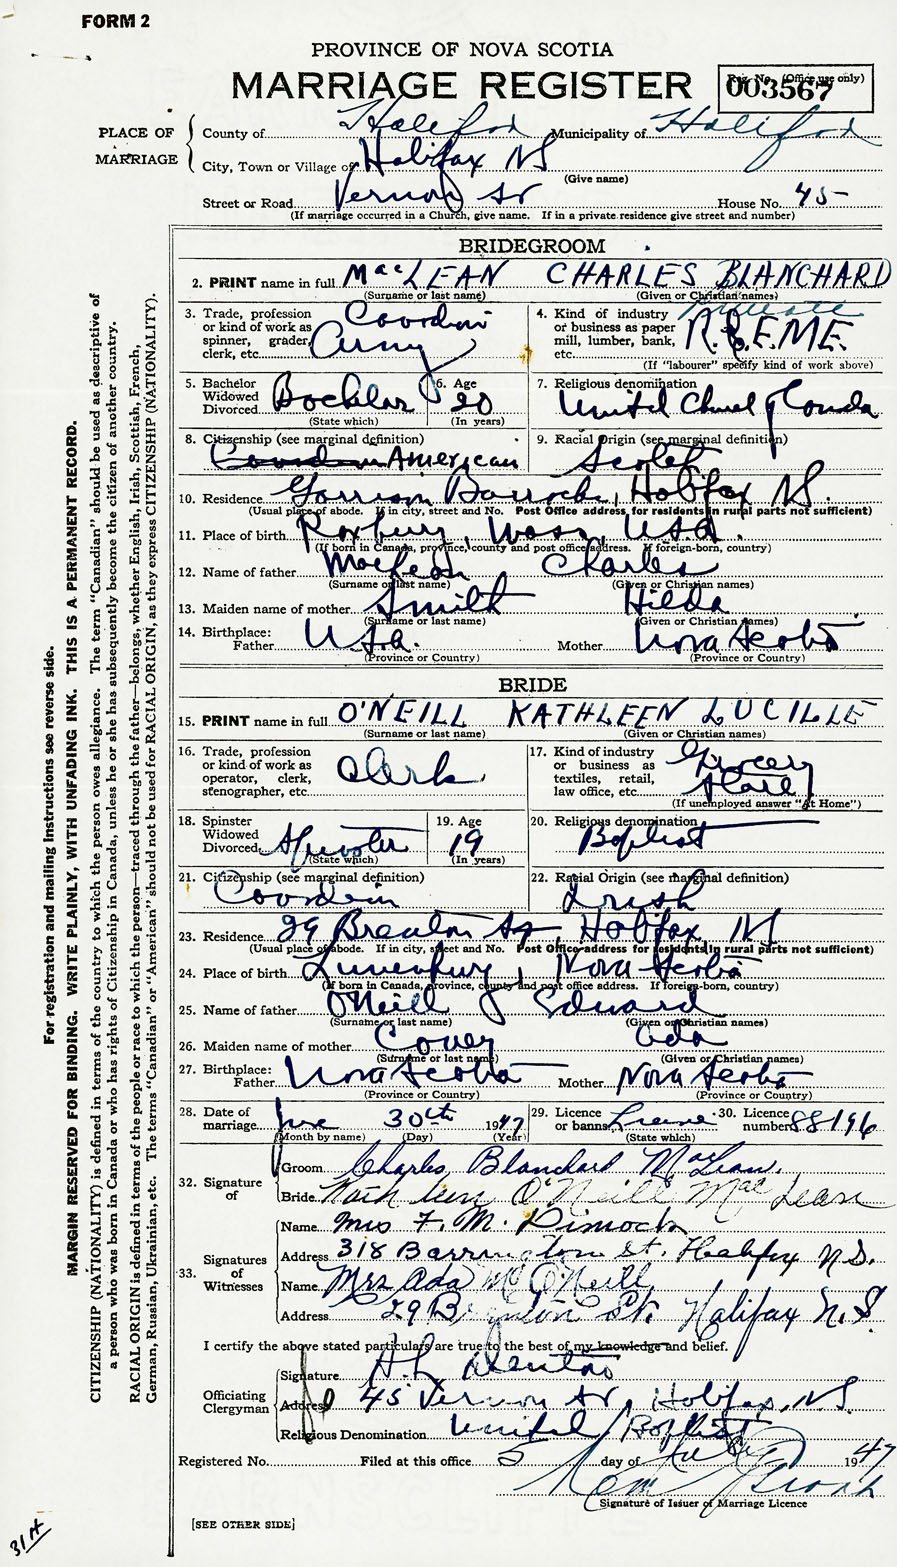 FORM 2
PROVINCE OF NOVA SCOTIA
MARRIAGE REGISTER
Reg. No. (Office use only)
003567
PLACE OF MARRIAGE
County of Halifax Municipality of Halifax
City, Town or Village of Halifax NS
(Give name)
Street or Road Vernon St House No. 45
(If marriage occurred in a Church, give name. If in a private residence give street and number)
BRIDEGROOM
2. PRINT name in full MacLEAN CHARLES BLANCHARD
(Surname or last name) (Given or Christian names)
3. Trade, profession or kind of work as spinner, grader, clerk, etc. Canadian Army
4. Kind of industry or business as paper mill, lumber, bank, etc. Private R.C.E.M.E.
(If "labourer" specify kind of work above)
5. Bachelor Widowed Divorced Bachelor
(State which)
6. Age 20
(In years)
7. Religious denomination United Church of Canada
8. Citizenship (see marginal definition)
American
9. Racial Origin (see marginal definition)
Scotch
10. Residence Garrison Barracks, Halifax NS.
(Usual place of abode. If in city, street and No. Post Office address for residents in rural parts not sufficient)
11. Place of birth Roxbury, Mass, USA.
(If born in Canada, province, county and post office address. If foreign-born, country)
12. Name of father MacLean Charles
(Surname or last name) (Given or Christian names)
13. Maiden name of mother Smith Hilda
(Surname or last name) (Given or Christian names)
14. Birthplace: Father USA. Mother Nova Scotia
(Province or Country) (Province or Country)
BRIDE
15. PRINT name in full O'NEILL KATHLEEN LUCILLE
(Surname or last name) (Given or Christian names)
16. Trade, profession or kind of work as operator, clerk, stenographer, etc. Clerk
17. Kind of industry or business as textiles, retail, law office, etc. Grocery Store
(If unemployed answer "At Home")
18. Spinster Widowed Divorced Spinster
(State which)
19. Age 19
(In years)
20. Religious denomination
Baptist
21. Citizenship (see marginal definition)
Canadian
22. Racial Origin (see marginal definition)
Irish
23. Residence 29 Halifax NS
(Usual place of abode. If in city, street and No. Post Office address for residents in rural parts not sufficient)
24. Place of birth Lunenburg, Nova Scotia
(If born in Canada, province, county and post office address. If foreign-born, country)
25. Name of father O'Neill Edward
(Surname or last name) (Given or Christian names)
26. Maiden name of mother Ada
(Surname or last name) (Given or Christian names)
27. Birthplace: Father Nova Scotia Mother Nova Scotia
(Province or Country) (Province or Country)
28. Date of marriage June 30th 1947
(Month by name) (Day) (Year)
29. Licence or banns License
(State which)
30. Licence number 88196
32. Signature of
Groom Charles Blanchard MacLean.
Bride Kathleen O'Neill MacLean
33. Signatures of Witnesses
Name Mrs F. M. Dimock
Address 318 Barrington St. Halifax N.S.
Name Mrs Ada M O'Neill
Address 29 St. Halifax N.S.
I certify the above stated particulars are true to the best of my knowledge and belief.
Officiating Clergyman
Signature
Address 45 Vernon St, Halifax, N.S.
Religious Denomination United Baptist
Registered No. Filed at this office 5 day of July 1947
Signature of Issuer of Marriage Licence
[SEE OTHER SIDE]
For registration and mailing instructions see reverse side.
MARGIN RESERVED FOR BINDING. WRITE PLAINLY, WITH UNFADING INK. THIS IS A PERMANENT RECORD.
CITIZENSHIP (NATIONALITY) is defined in terms of the country to which the person owes allegiance. The term "Canadian" should be used as descriptive of
a person who was born in Canada or who has rights of Citizenship in Canada, unless he or she has subsequently become the citizen of another country.
RACIAL ORIGIN is defined in terms of the people or race to which the person—traced through the father—belongs, whether English, Irish, Scottish, French,
German, Russian, Ukrainian, etc. The terms "Canadian" or "American" should not be used for RACIAL ORIGIN, as they express CITIZENSHIP (NATIONALITY).